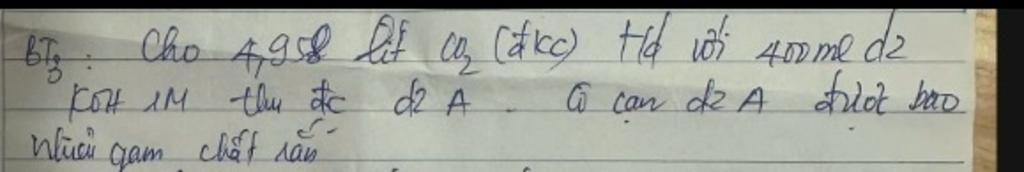 BT3: Cho 4,958 lít CO2 (đkc) t/d với 400ml d2
KOH 1M thu đc d2 A. Cô cạn d2 A được bao
nhiêu gam chất rắn